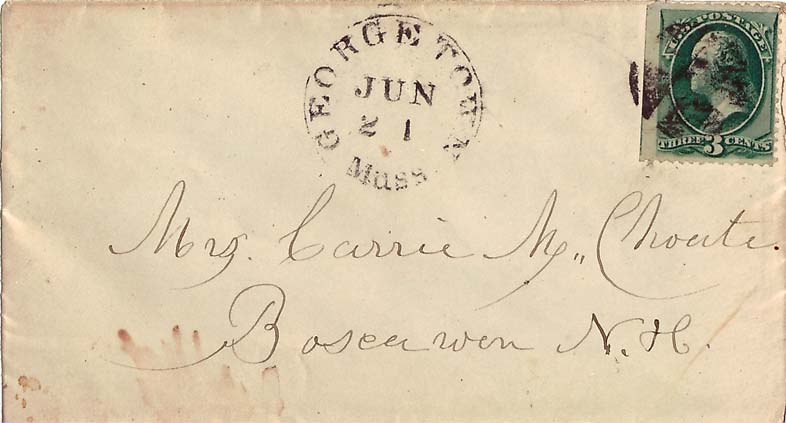 GEORGETOWN
JUN
21
Mass
U.S. POSTAGE
THREE 3 CENTS
Mrs. Carrie M,, Choate.
Boscawen N.H.